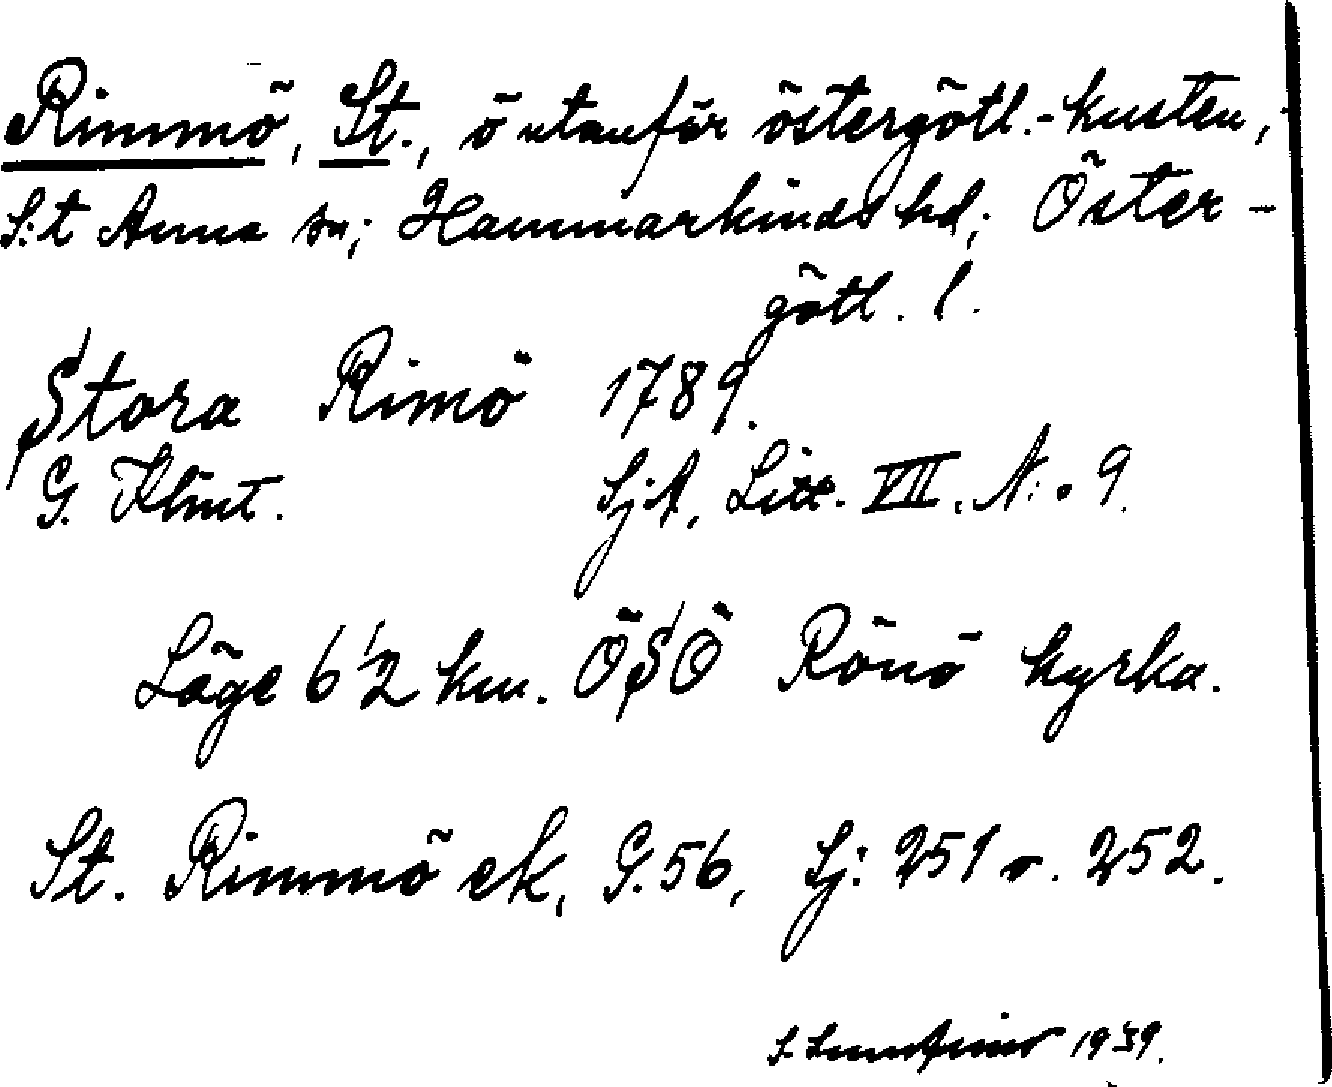 Rimmö, St., ö utanför östergötl.-kusten,
S:t Anna sn; Hammarkinds hd; Öster-
götl. l.
Stora Rimö 1789.
G. Klint. Sjk, Litt. VII. N:o 9.
Läge 6 1/2 km. ÖSÖ Rönö kyrka.
St. Rimmö ek, G. 56, Sj: 251 o. 252.
S. 1939.